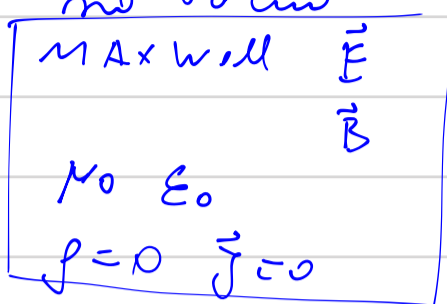 MAXWell $\vec{E}$
$\vec{B}$
μ0 ε0
ρ=0 $\vec{J}$=0